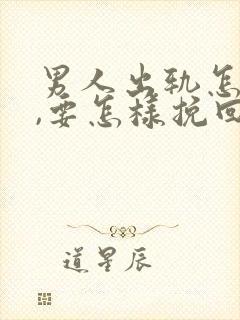 男人出轨怎
,要怎样挽回
道星辰